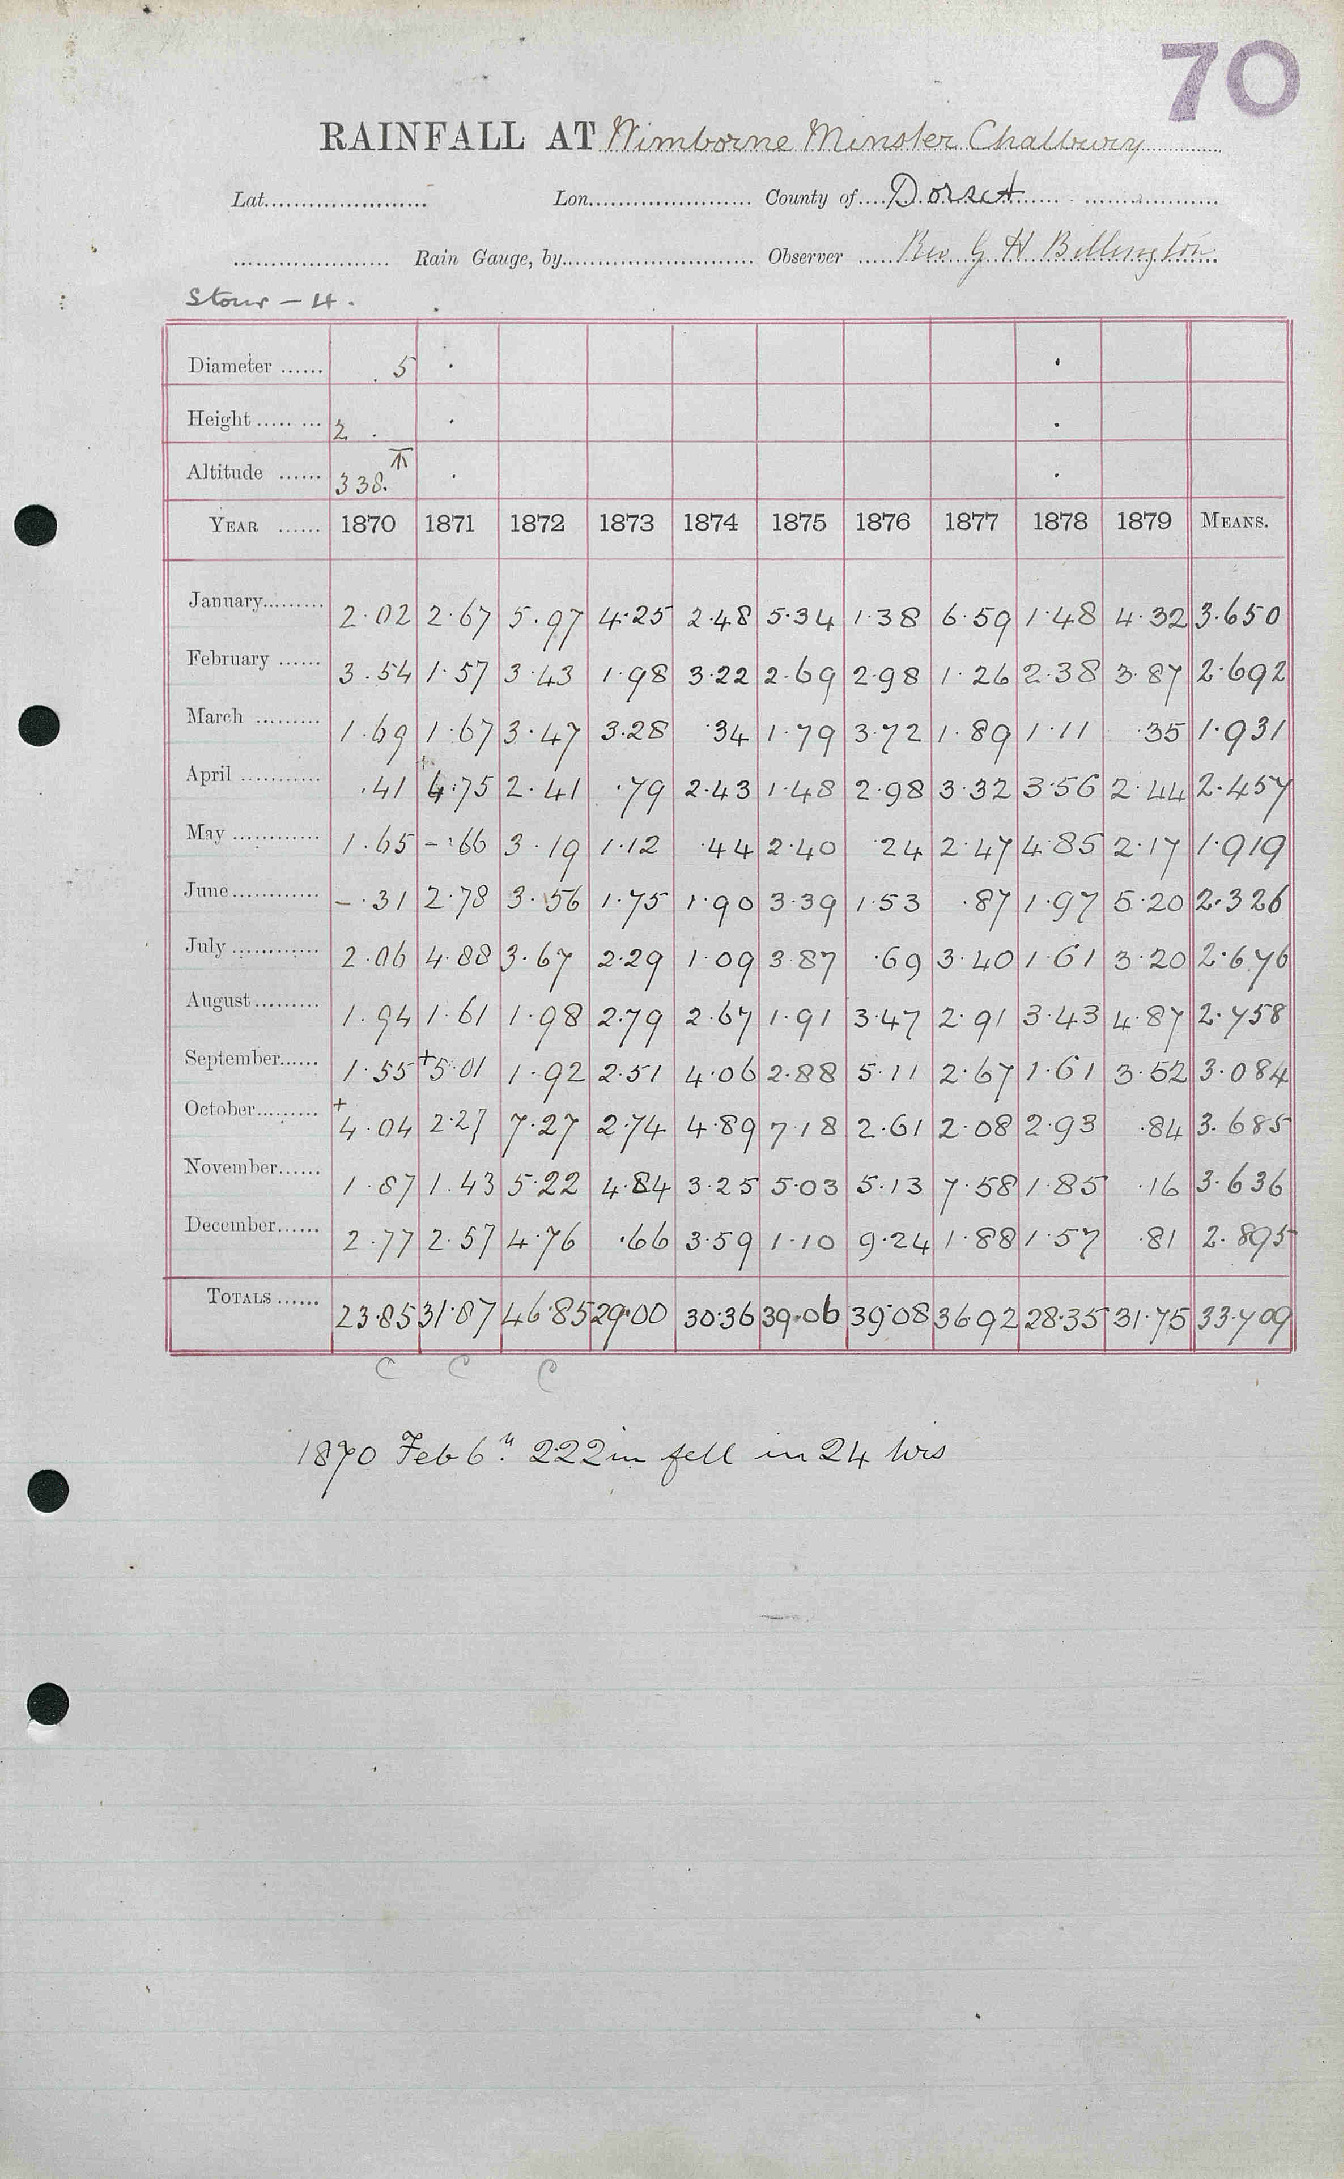 70
RAINFALL AT Wimborne Minster Chalbury
Lat. Lon. County of Dorset
Rain Gauge, by Observer Rev G H Billington
Stour - 4.
Diameter 5
Height 2
Altitude 338. T
YEAR 1870 1871 1872 1873 1874 1875 1876 1877 1878 1879 MEANS.
January 2.02 2.67 5.97 4.25 2.48 5.34 1.38 6.59 1.48 4.32 3.650
February 3.54 1.57 3.43 1.98 3.22 2.69 2.98 1.26 2.38 3.87 2.692
March 1.69 1.67 3.47 3.28 .34 1.79 3.72 1.89 1.11 .35 1.931
April .41 4.75 2.41 .79 2.43 1.48 2.98 3.32 3.56 2.44 2.457
May 1.65 -.66 3.19 1.12 .44 2.40 .24 2.47 4.85 2.17 1.919
June -.31 2.78 3.56 1.75 1.90 3.39 1.53 .87 1.97 5.20 2.326
July 2.06 4.88 3.67 2.29 1.09 3.87 .69 3.40 1.61 3.20 2.676
August 1.94 1.61 1.98 2.79 2.67 1.91 3.47 2.91 3.43 4.87 2.758
September 1.55 +5.01 1.92 2.51 4.06 2.88 5.11 2.67 1.61 3.52 3.084
October +4.04 2.27 7.27 2.74 4.89 7.18 2.61 2.08 2.93 .84 3.685
November 1.87 1.43 5.22 4.84 3.25 5.03 5.13 7.58 1.85 .16 3.636
December 2.77 2.57 4.76 .66 3.59 1.10 9.24 1.88 1.57 .81 2.895
TOTALS 23.85 31.87 46.85 29.00 30.36 39.06 39.08 36.92 28.35 31.75 33.709
C C C
1870 Feb 6th 2.22 in fell in 24 hrs